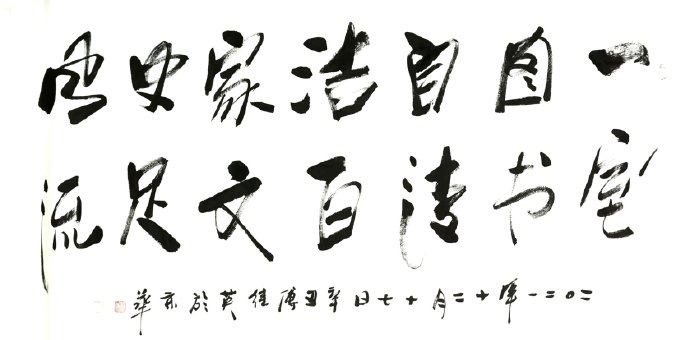 一室
图书
自清
洁百
家文
史足
风流
二〇二一年十二月十七日辛丑傅佳英於京華